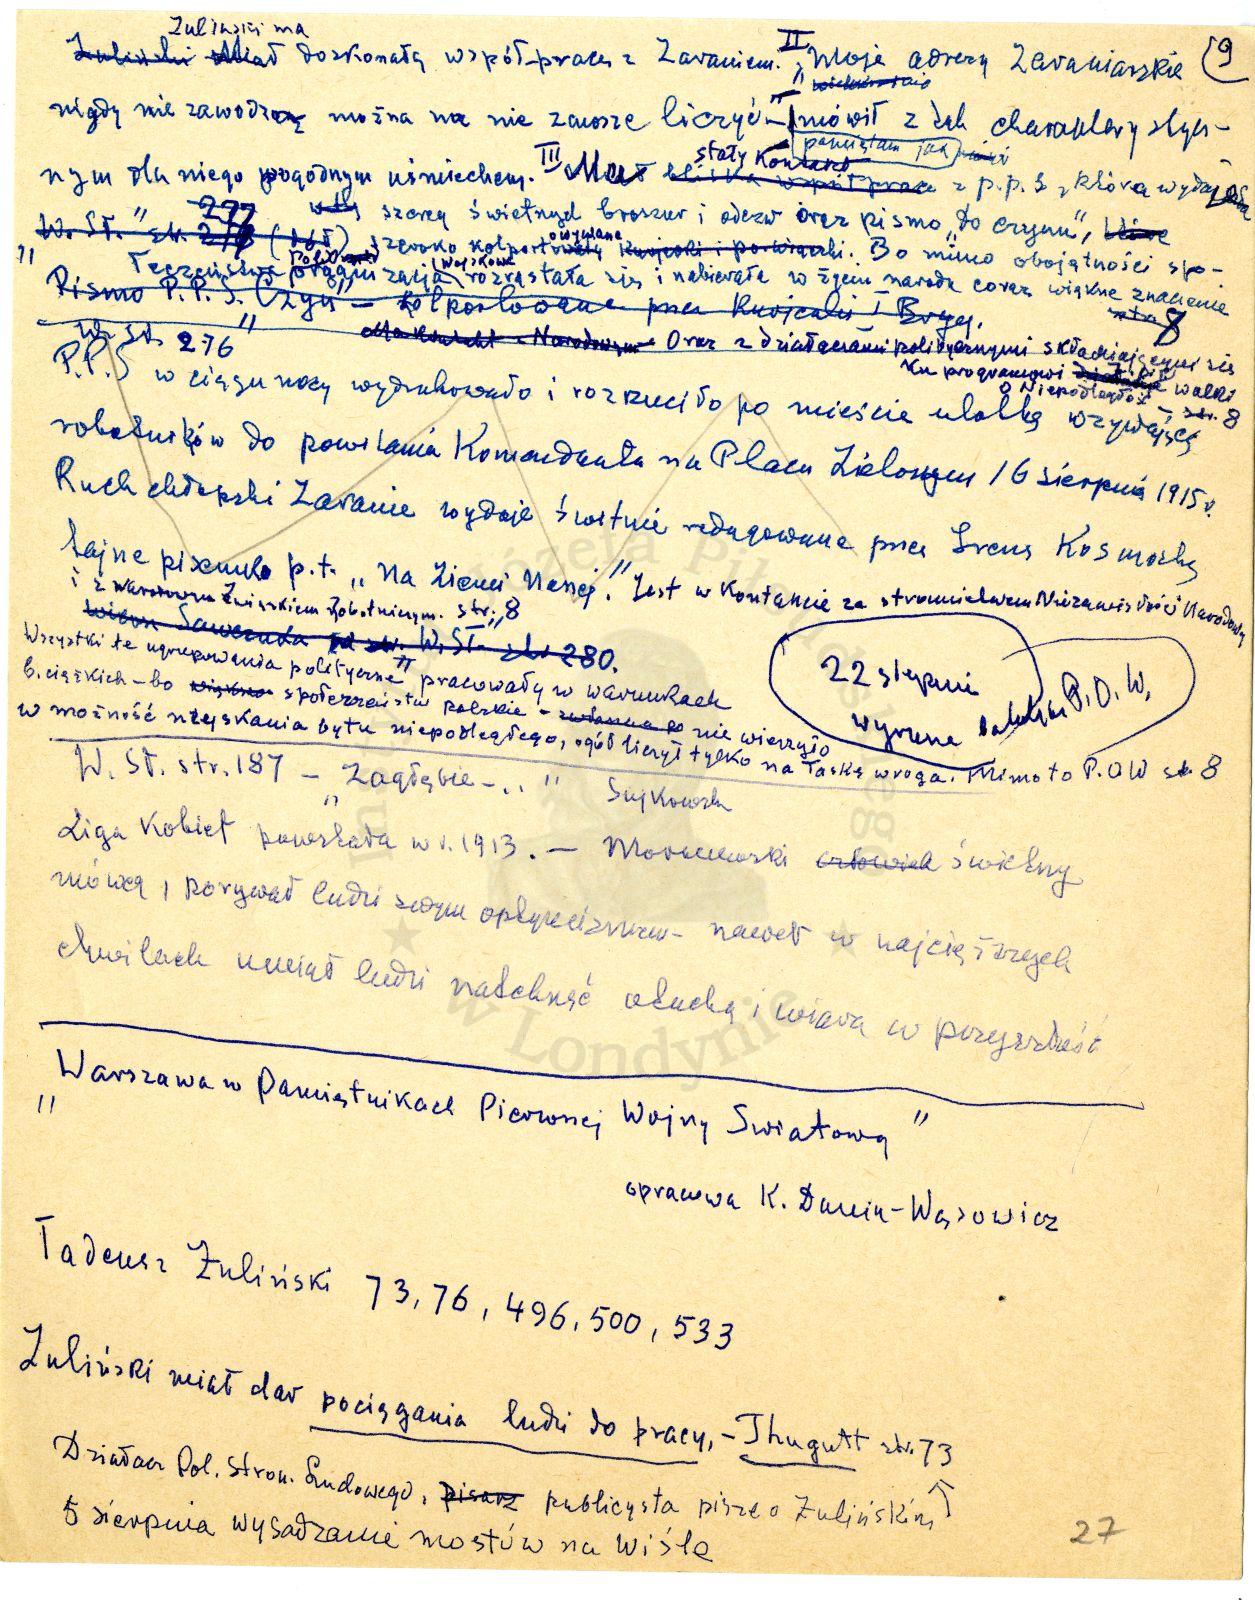 Żuliński ma
9
Żuliński Miał doskonałą współ-pracę z Zaraniem. II „Moje adresy Zaraniarskie
nigdy nie zawodzą można na nie zawsze liczyć" – mówił z tak charakterystycz-
pamiętam jak
nym dla niego pogodnym uśmiechem. III Miał bliską współpracę z p.p.S z którą wydaje
stały Kontakt
277 szereg świetnych broszur i odezw oraz pismo „do czynu",
W. St." str. 276 szeroko kolportowane. Bo mimo obojętności spo-
łeczeństwa organizacja Wojskowa rozrastała się i nabierała w życiu narodu coraz większe znaczenie
Pismo P.P.S. Czyn" – kolportowane przez Kurjerki I Bryg. str 8
W. St. 276" Oraz z działaczami politycznymi skłaniającymi się
ku programowi walki
o Niepodległość – str. 8
P.P.S w ciągu nocy wydrukowało i rozrzuciło po mieście ulotkę wzywającą
robotników do powitania Komendanta na Placu Zielonym 16 sierpnia 1915 r.
Ruch chłopski Zaranie wydaje świetnie redagowane przez Irenę Kosmoską
tajne pisemko p.t. „Na Ziemi Naszej". Jest w Kontakcie ze stronnictwem Niezawisłości Narodowej
i z Narodowym Związkiem Robotniczym. str. 8
W. St. str 280.
Wszystkie te ugrupowania polityczne pracowały w warunkach
b. ciężkich – bo większość społeczeństwa polskie – nie wierzyło
w możność uzyskania bytu niepodległego, ogół liczył tylko na łaskę wroga. Mimo to P.O.W str 8
22 sierpnia
wyrusza batalion P.O.W.
W. St. str. 187 – „Zagłębie – .. " Sujkowska
Liga Kobiet powstała w r. 1913. – Moraczewski człowiek świetny
mówca i porywał ludzi swym optymizmem – nawet w najcięższych
chwilach umiał ludzi natchnąć otuchą i wiarą w przyszłość
„Warszawa w Pamiętnikach Pierwszej Wojny Światowej"
oprawa K. Dunin-Wąsowicz
Tadeusz Żuliński 73, 76, 496, 500, 533
Żuliński miał dar pociągania ludzi do pracy, – Thugutt str. 73
Działacz Pol. Stron. Ludowego, pisarz publicysta pisze o Żulińskim
5 sierpnia wysadzanie mostów na Wiśle
27
Józefa Piłsudskiego
w Londynie